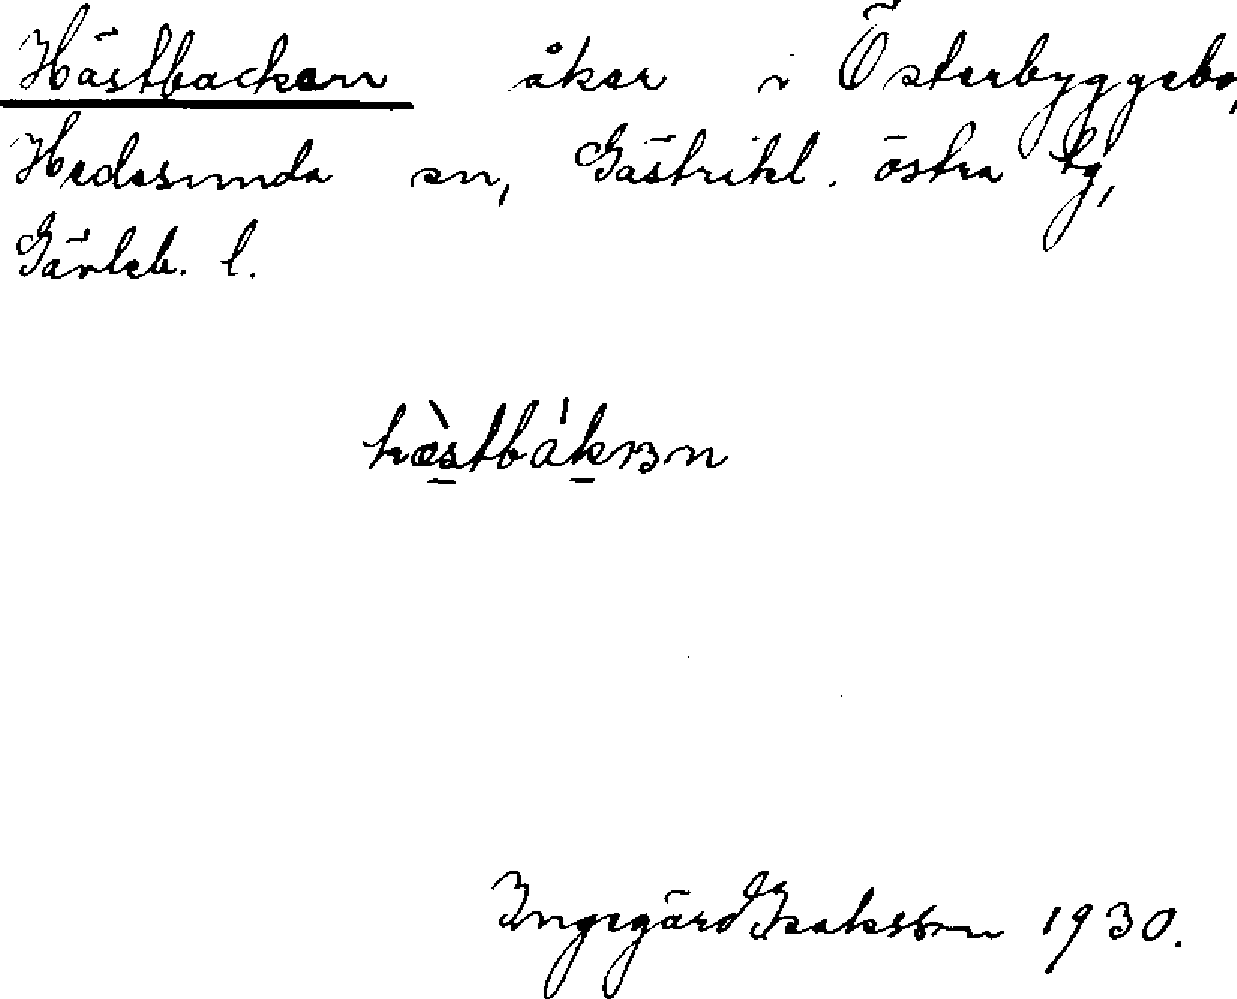 Hästbacken åker i Österbyggebo,
Hedesunda sn, Gästrikl. östra tg,
Gävleb. l.
Ingegärd Isaksson 1930.